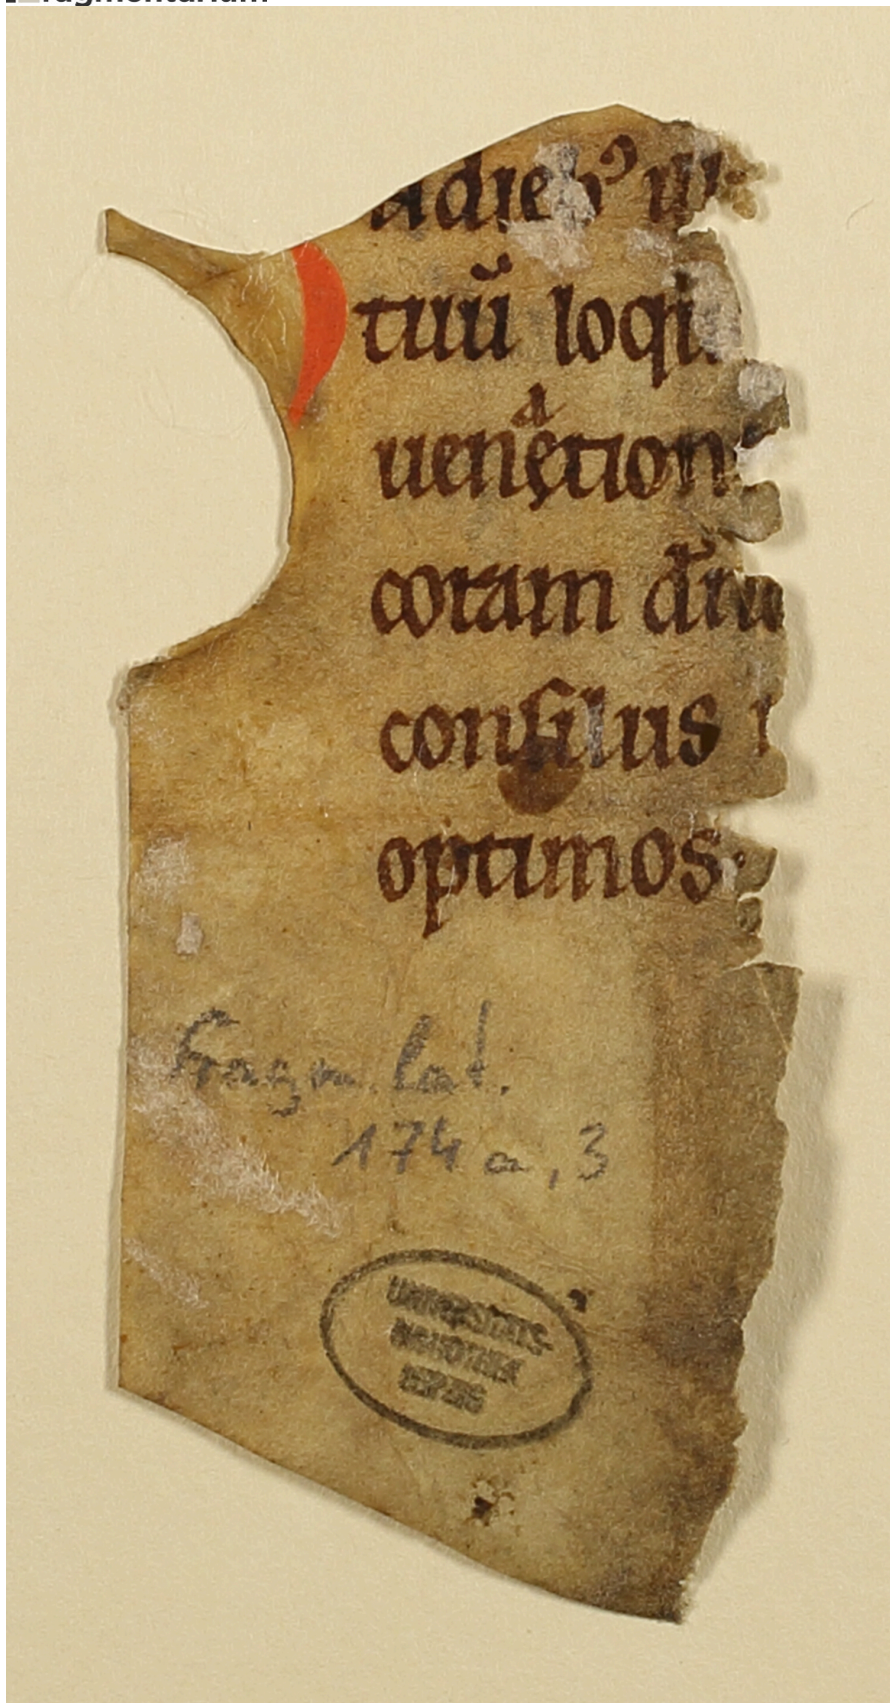 adieb᾽ ill
tuū loqi
uenętion
coram dn̄o
consiliis
optimos.
Fragm. lat.
174 a, 3
UNIVERSITÄTS-
BIBLIOTHEK
LEIPZIG